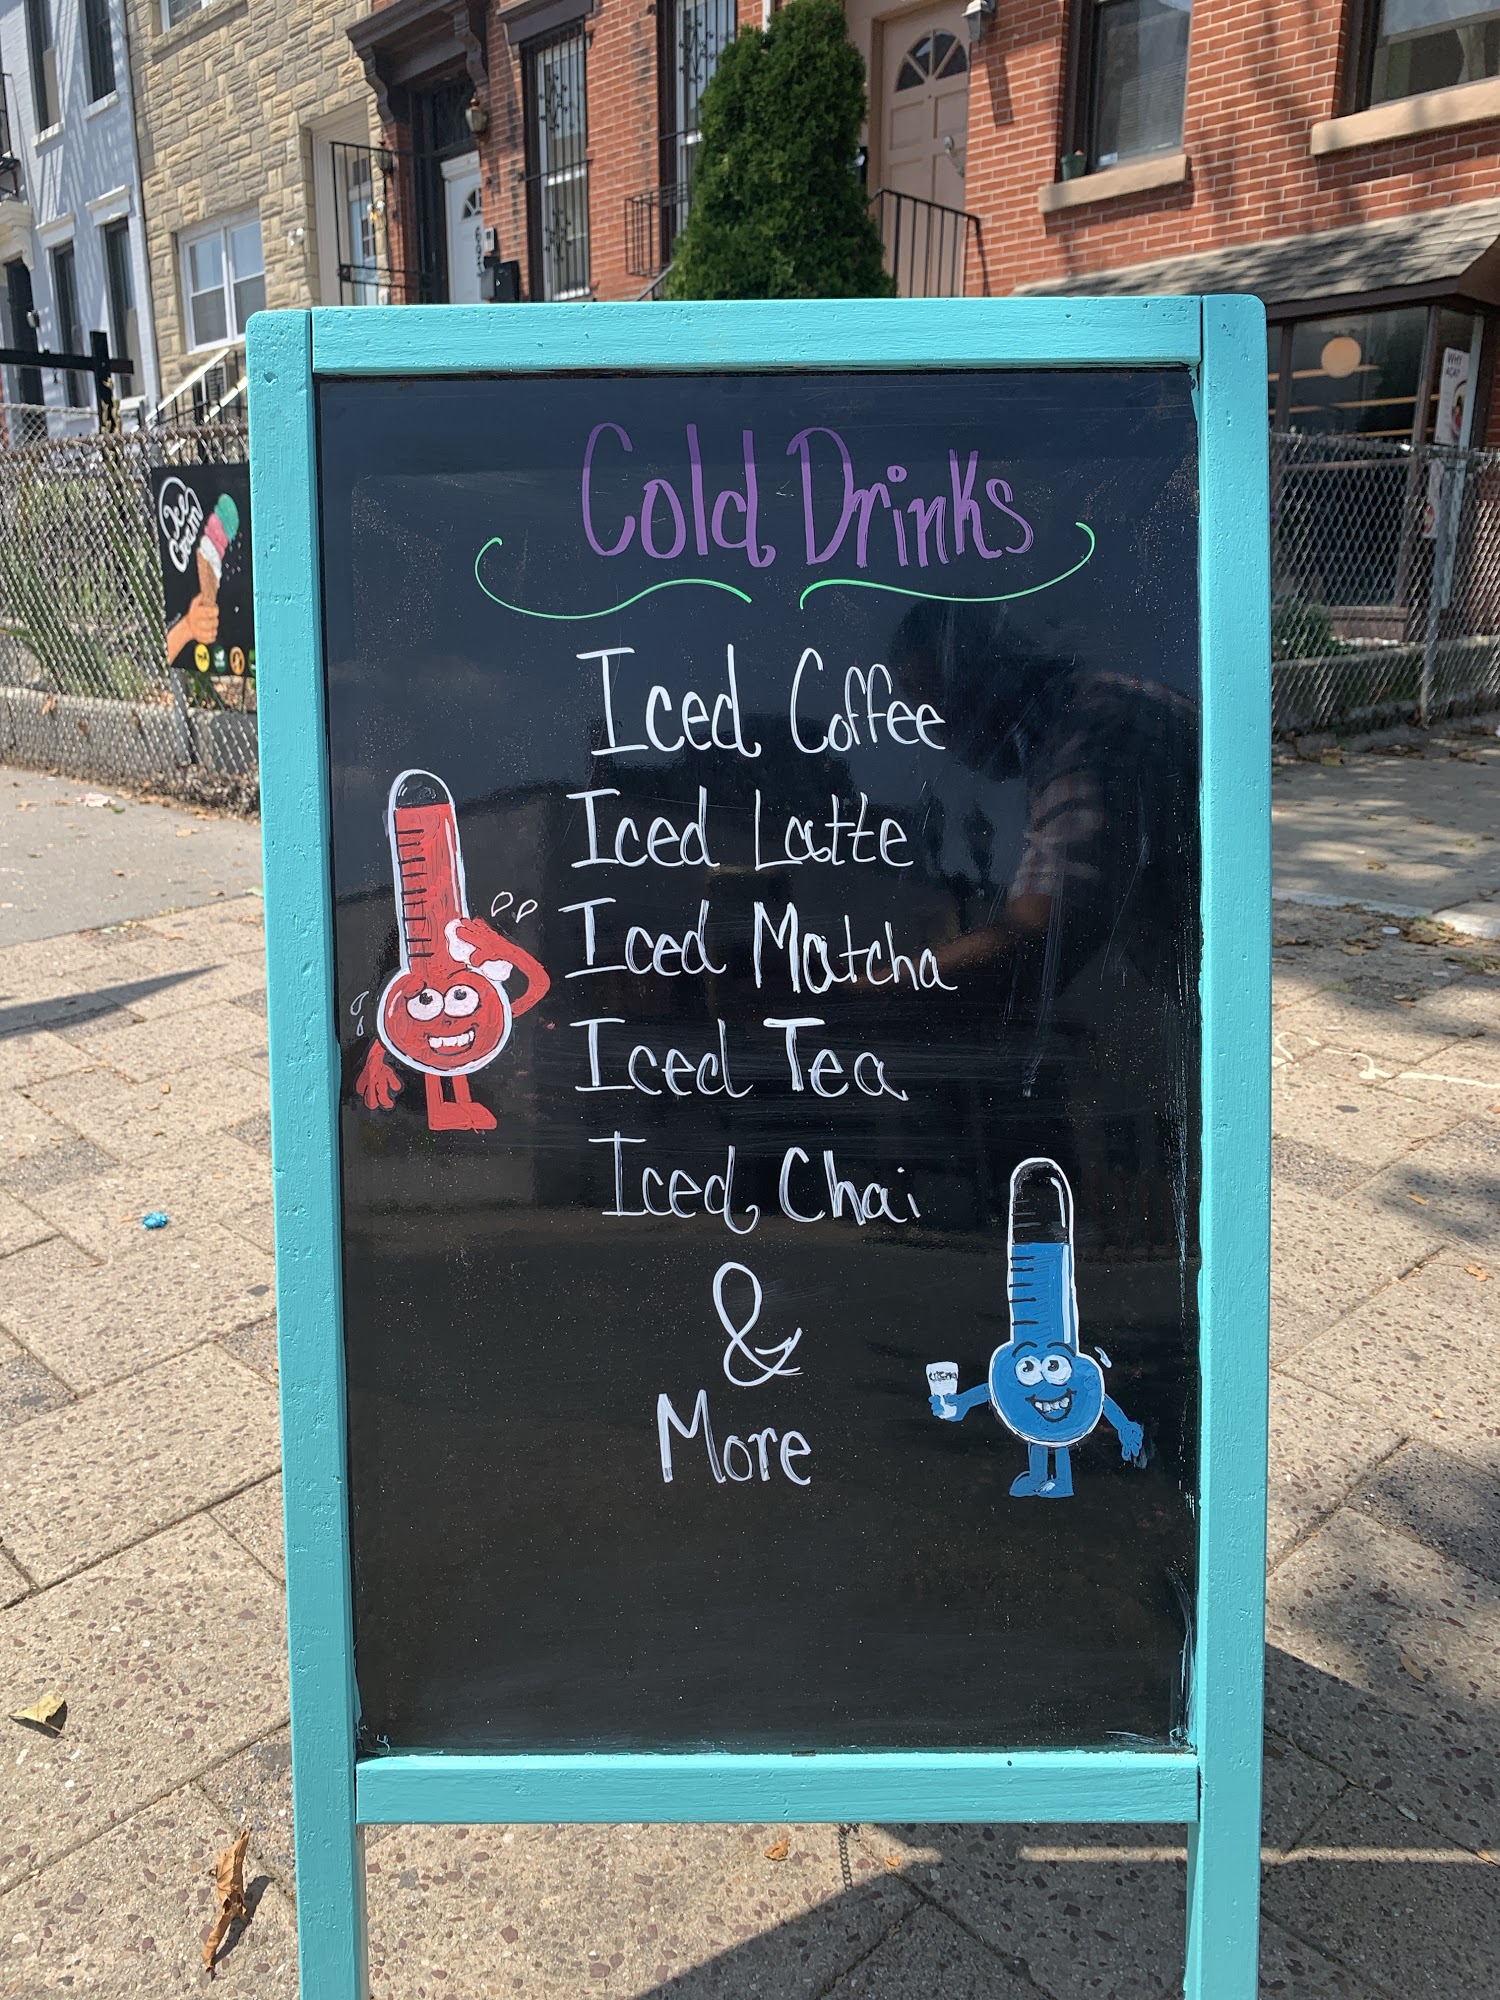 Cold Drinks
Iced Coffee
Iced Latte
Iced Matcha
Iced Tea
Iced Chai
&
More
Ice
Cream
WHY